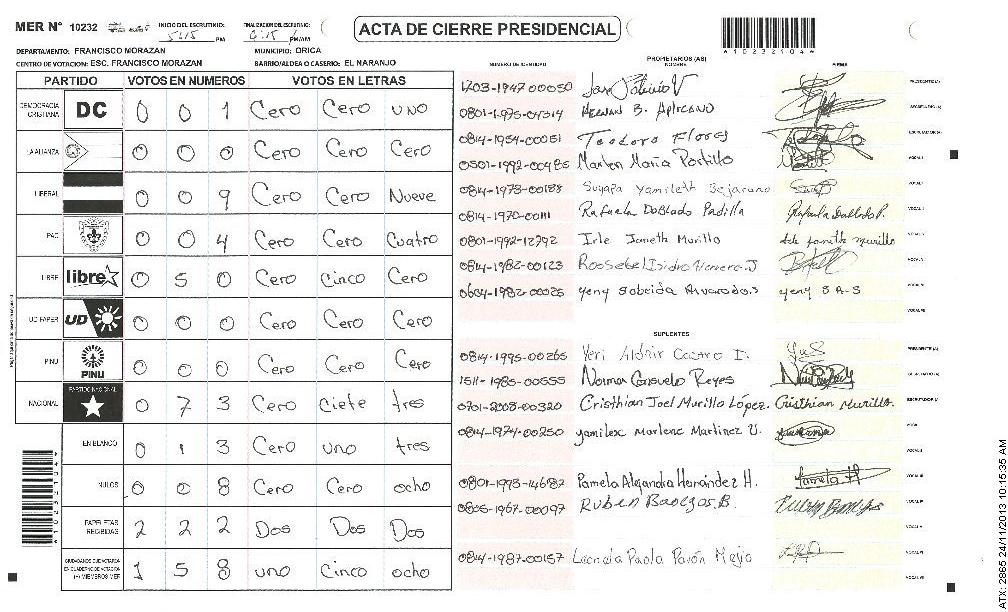 MER N° 10232 INICIO DEL ESCRUTINIO: 5:15 PM FINALIZACION DEL ESCRUTINIO: 6:15 PM/AM
ACTA DE CIERRE PRESIDENCIAL
*10232104*
DEPARTAMENTO: FRANCISCO MORAZAN MUNICIPIO: ORICA
CENTRO DE VOTACION: ESC. FRANCISCO MORAZAN BARRIO/ALDEA O CASERIO: EL NARANJO
PARTIDO VOTOS EN NUMEROS VOTOS EN LETRAS
DEMOCRACIA CRISTIANA DC 0 0 1 Cero Cero uno
LA ALIANZA 0 0 0 Cero Cero Cero
LIBERAL 0 0 9 Cero Cero Nueve
PAC 0 0 4 Cero Cero Cuatro
LIBRE libre 0 5 0 Cero Cinco Cero
UD FAPER UD 0 0 0 Cero Cero Cero
PINU PINU 0 0 0 Cero Cero Cero
NACIONAL PARTIDO NACIONAL 0 7 3 Cero Ciete tres
EN BLANCO 0 1 3 Cero uno tres
NULOS 0 0 8 Cero Cero ocho
PAPELETAS RECIBIDAS 2 2 2 Dos Dos Dos
CIUDADANOS QUE VOTARON EN CUADERNO DE VOTACION (+) MIEMBROS MER 1 5 8 uno Cinco ocho
PROPIETARIOS (AS)
NUMERO DE IDENTIDAD NOMBRE FIRMA
1703-1947-00050 PRESIDENTE (A)
0801-1975-04314 HERNAN B. APLICANO SECRETARIO (A)
0814-1954-00051 Teodoro Flores ESCRUTADOR (A)
0501-1992-00485 Marlen Maria Portillo VOCAL I
0814-1973-00188 Suyapa Yamileth Bejarano
0814-1970-00111 Rafaela Doblado Padilla
0801-1992-12792 Irle Janeth Murillo
0814-1982-00123
0604-1982-00026 yeny Sobeida Alvarado.S yeny S A-S
SUPLENTES
0814-1995-00265 PRESIDENTE (A)
1511-1985-00555 Norma Consuelo Reyes
0701-2008-00320 Cristhian Joel Murillo López. Cristhian Murillo.
0814-1974-00250 yamilex Marlene Martinez U.
0801-1993-14682 Pamela Alejandra Hernández H. Pamela H
0805-1967-00097 RUBEN Banegas.B.
0814-1987-00157 Paola Pavón Mejia
ATX: 2865 24/11/2013 10:15:35 AM